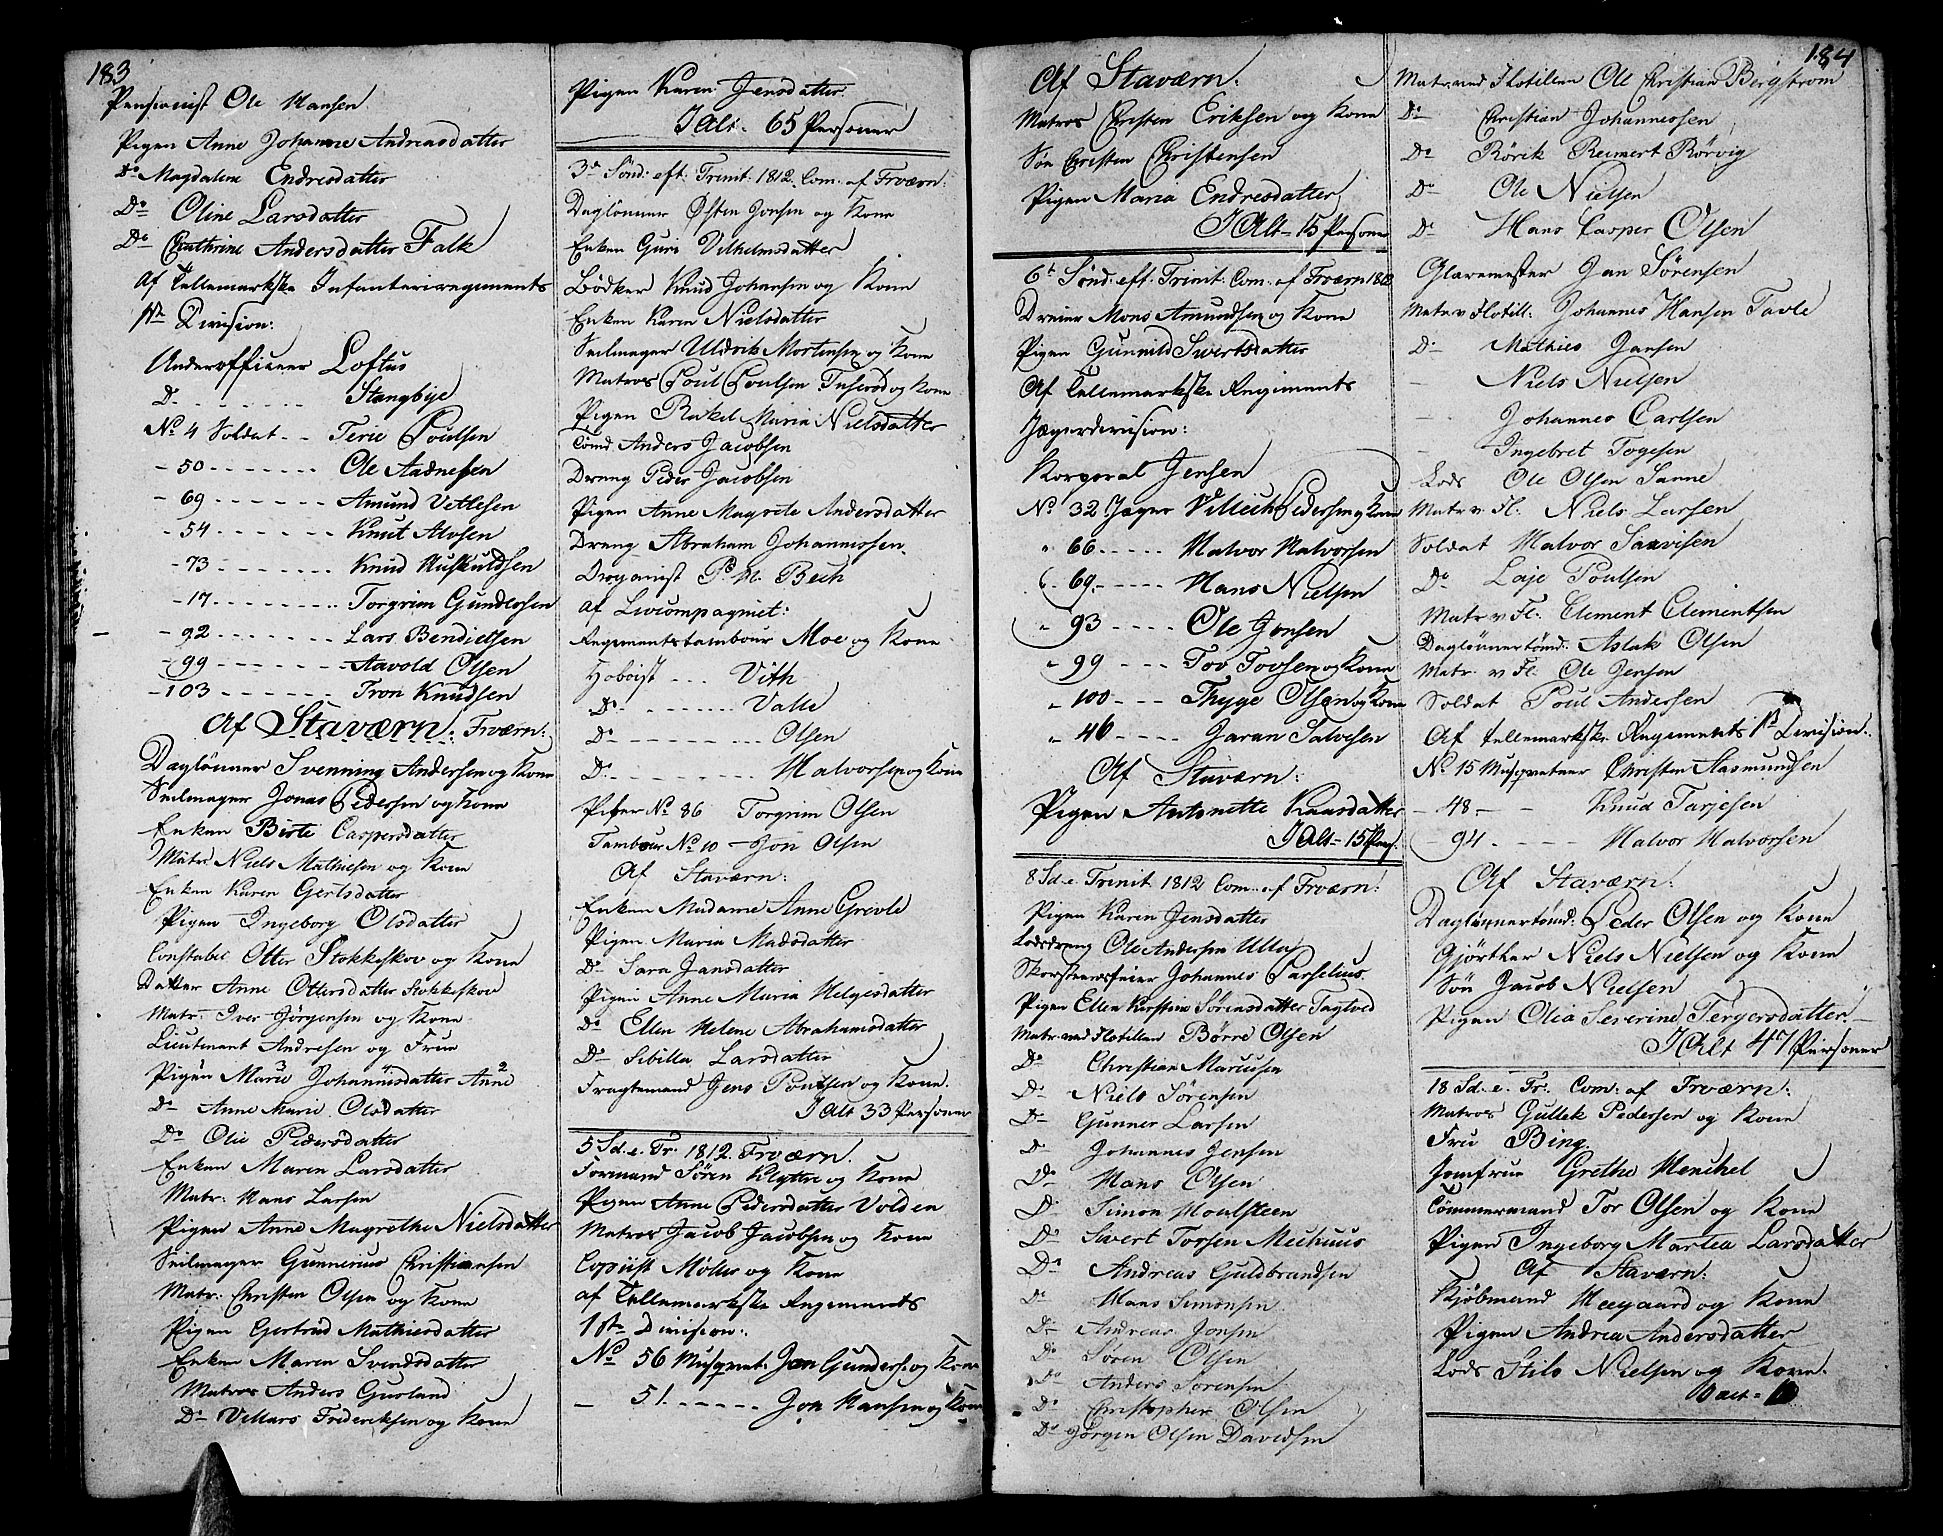 183
Pensionist Ole Hansen
Pigen Anne Johanne Andreasdatter
Do Magdalene Endresdatter
Do Oline Larsdatter
Do Cathrine Andersdatter Falk
af Tellemarkske Infanteriregiments
1ste Division:
Underofficeer Loftus
Do - - - - Stangbye
No 4 Soldat - - Terie Poulsen
- 50 - - - - Ole Aadnesen
- 69 - - - - Amund Vetlesen
- 54 - - - - Knut Alvsen
- 73 - - - - Knud Huskuldsen
- 17 - - - - Torgrim Gundersen
- 92 - - - - Lars Bendictsen
- 99 - - - - Aavold Olsen
- 103 - - - - Tron Knudsen
Af Staværn: Frværn:
Daglönner Svenning Andersen og Kone
Seilmager Jonas Pedersen og Kone
Enken Birte Caspersdatter
Matr: Niels Mathiesen og Kone
Enken Karen Gertsdatter
Pigen Ingeborg Olsdatter
Constabel Otter Stokkeskov og Kone
Datter Anne Ottersdatter Stokkeskov
Matr: Iver Jörgensen og Kone
Lieutenant Andresen og Frue
Pigen Marie Johannisdatter Anne
Do Anne Marie Olsdatter
Do Olie Pedersdatter
Enken Maren Larsdatter
Matr: Hans Larsen
Pigen Anne Magrethe Nielsdatter
Seilmager Gunnerius Christiansen
Matr: Christen Olsen og Kone
Pigen Gertrud Mathiesdatter
Enken Maren Svendsdatter
Matros Anders Gusland
Do Villars Frideriksen og Kone
Pigen Karen Jensdatter
I Alt - 65 Personer
3de Sönd: eft: Trinit: 1812. Com: af Frværn:
Daglönner Østen Jonsen og Kone
Enken Guri Vilhelmsdatter
Bödker Knud Johansen og Kone
Enken Karen Nielsdatter
Seilmager Uldrik Mortensen og Kone
Matros Poul Poulsen og Kone
Pigen Rakel Maria Nielsdatter
Tömd Anders Jacobsen
Dreng Peder Jacobsen
Pigen Anne Magrete Andersdatter
Dreng Abraham Johannessen
P. H. Bech
af Livcompagniet:
Regimentstambour Moe og Kone
Hoboist - - - Vith
Do - - - - Valle
Do - - - - Olsen
Do - - - - Halvorsen og Kone
Piber No 86 Torgrim Olsen
Tambour No 10 - Jon Olsen
Af Staværn:
Enken Madame Anne Grevle
Pigen Maria Madsdatter
Do Sara Jansdatter
Pigen Anne Maria Helgesdatter
Do Ellen Helene Abrahamsdatter
Do Sibilla Larsdatter
Fragtemand Jens Poulsen og Kone.
I Alt 33 Personer
5 Sd. e. Tr. 1812. Frværn.
Formand Sören Klyttre og Kone
Pigen Anne Pedersdatter Volden
Matros Jacob Jacobsen og Kone
Copiist Möller og Kone
af Tellemarkske Regiments
1ste Division:
No 56 Musquet: Jon Gunders: og Kone
- 51. - - - - Jon Hansen og Kone
184
Af Staværn:
Matros Christen Eriksen og Kone
Sön Christen Christensen
Pigen Maria Endresdatter
I Alt - 15 Personer
6te Sönd: eft: Trinit: Com: af Frværn 1812
Dreier Mons Amundsen og Kone
Pigen Gunnild Sivertsdatter
Af Tellemarkske Regiments
Jægerdivision:
Korporal Jensen
No 32 Jæger Villich Pedersen og Kone
" 66 - - - - Halvor Halvorsen
" 69 - - - - Hans Nielsen
" 93 - - - - Ole Jonsen
" 99 - - - Tov Tovsen og Kone
" 100 - - - Thyge Olsen og Kone
" 46 - - - - Jøran Salvesen
Af Staværn:
Pigen Antonette Klausdatter
I Alt - 15 Pers:
8 Sd. e. Trinit 1812 Com: af Frværn:
Pigen Karen Jensdatter
Lodsdreng Ole Andersen Ulla
Skorsteensfeier Johannes Parselius
Pigen Ellen Kirstine Sörensdatter Tagtved
Matr: ved Flotillen Börre Olsen
Do Christian Marcusen
Do Niels Sörensen
Do Gunner Larsen
Do Johannes Jensen
Do Hans Olsen
Do Simon Houlsteen
Do Sivert Torsen Mechuus
Do Andreas Guldbrandsen
Do Hans Simonsen
Do Andreas Jonsen
Do Sören Olsen
Do Anders Sörensen
Do Christopher Olsen
Do Jörgen Olsen Davidsen
Matr: ved Flotillen Ole Christian Bergstrom
Do Christian Johannessen
Do Rörik Reimert Rörvig
Do Ole Nielsen
Do Hans Casper Olsen
Glarmester Jan Sörensen
Matr: v Flotill: Johannes Hansen Tavle
Do - Mathies Jansen
- Niels Nielsen
- Johannes Carlsen
- Ingebret Togesen
Lods Ole Olsen Sanne
Matr v. Fl. Niels Larsen
Soldat Halvor Saavesen
Do Loje Poulsen
Matr v Fl: Clement Clementsen
Daglönnertömd: Aslak Olsen
Matr. v Fl: Ole Jensen
Soldat Poul Andersen
Af tellemarkske Regiments 1ste Division:
No 15 Musqueteer Christen Aasmundsen
- 48 - - Knud Tarjesen
- 94 - - - Halvor Halvorsen
Af Staværn:
Daglönnertömd: Peder Olsen og Kone
Gjörtler Niels Nielsen og Kone
Sön Jacob Nielsen
Pigen Olia Severine Tergersdatter
I Alt 47 Personer
18 Sd. e. Tr. Com: af Frværn:
Matros Gullek Pedersen og Kone
Fru Bing
Jomfrue Grethe Henchel
Tömmermand Tor Olsen og Kone
Pigen Ingeborg Martea Larsdatter
Af Staværn:
Kjöbmand Heegaard og Kone
Pigen Andrea Andersdatter
Lods Nielsen og Kone.